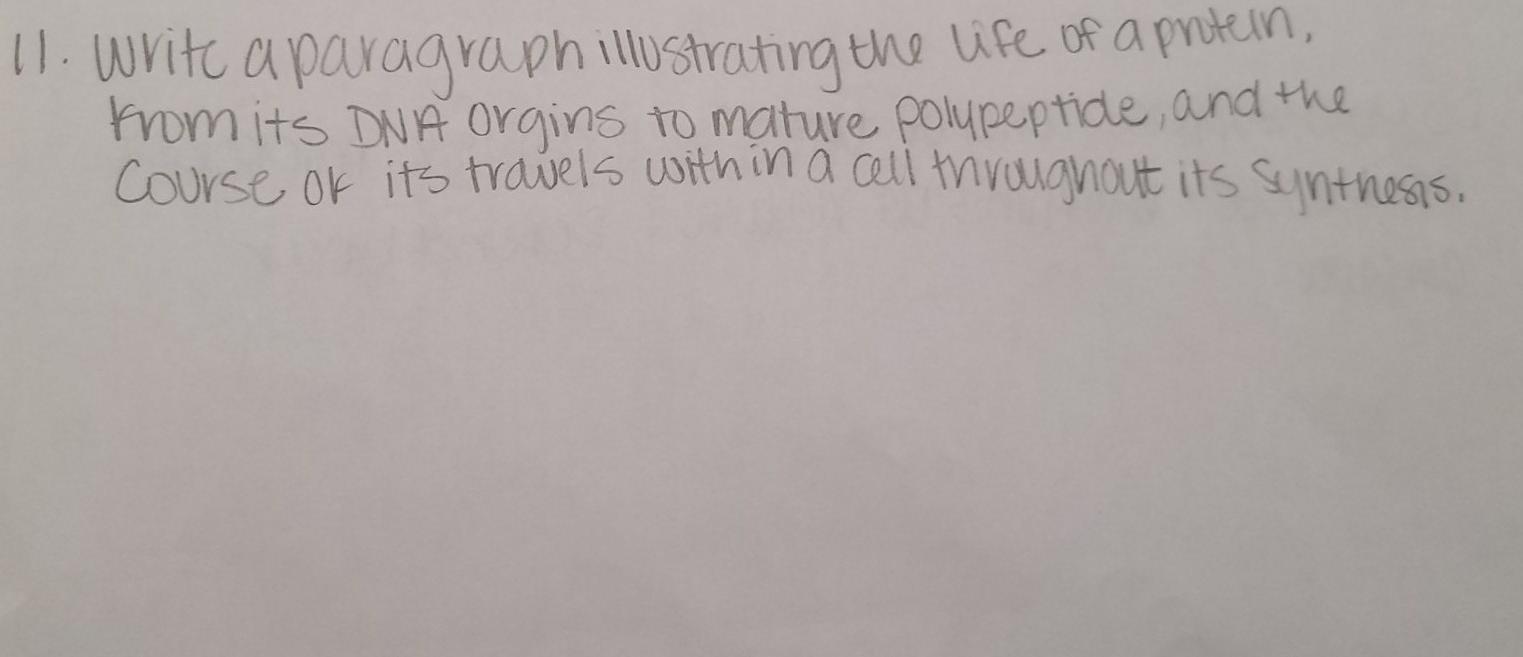 11. Write a paragraph illustrating the life of a protein,
from its DNA orgins to mature polypeptide, and the
course of its travels within a cell throughout its synthesis.